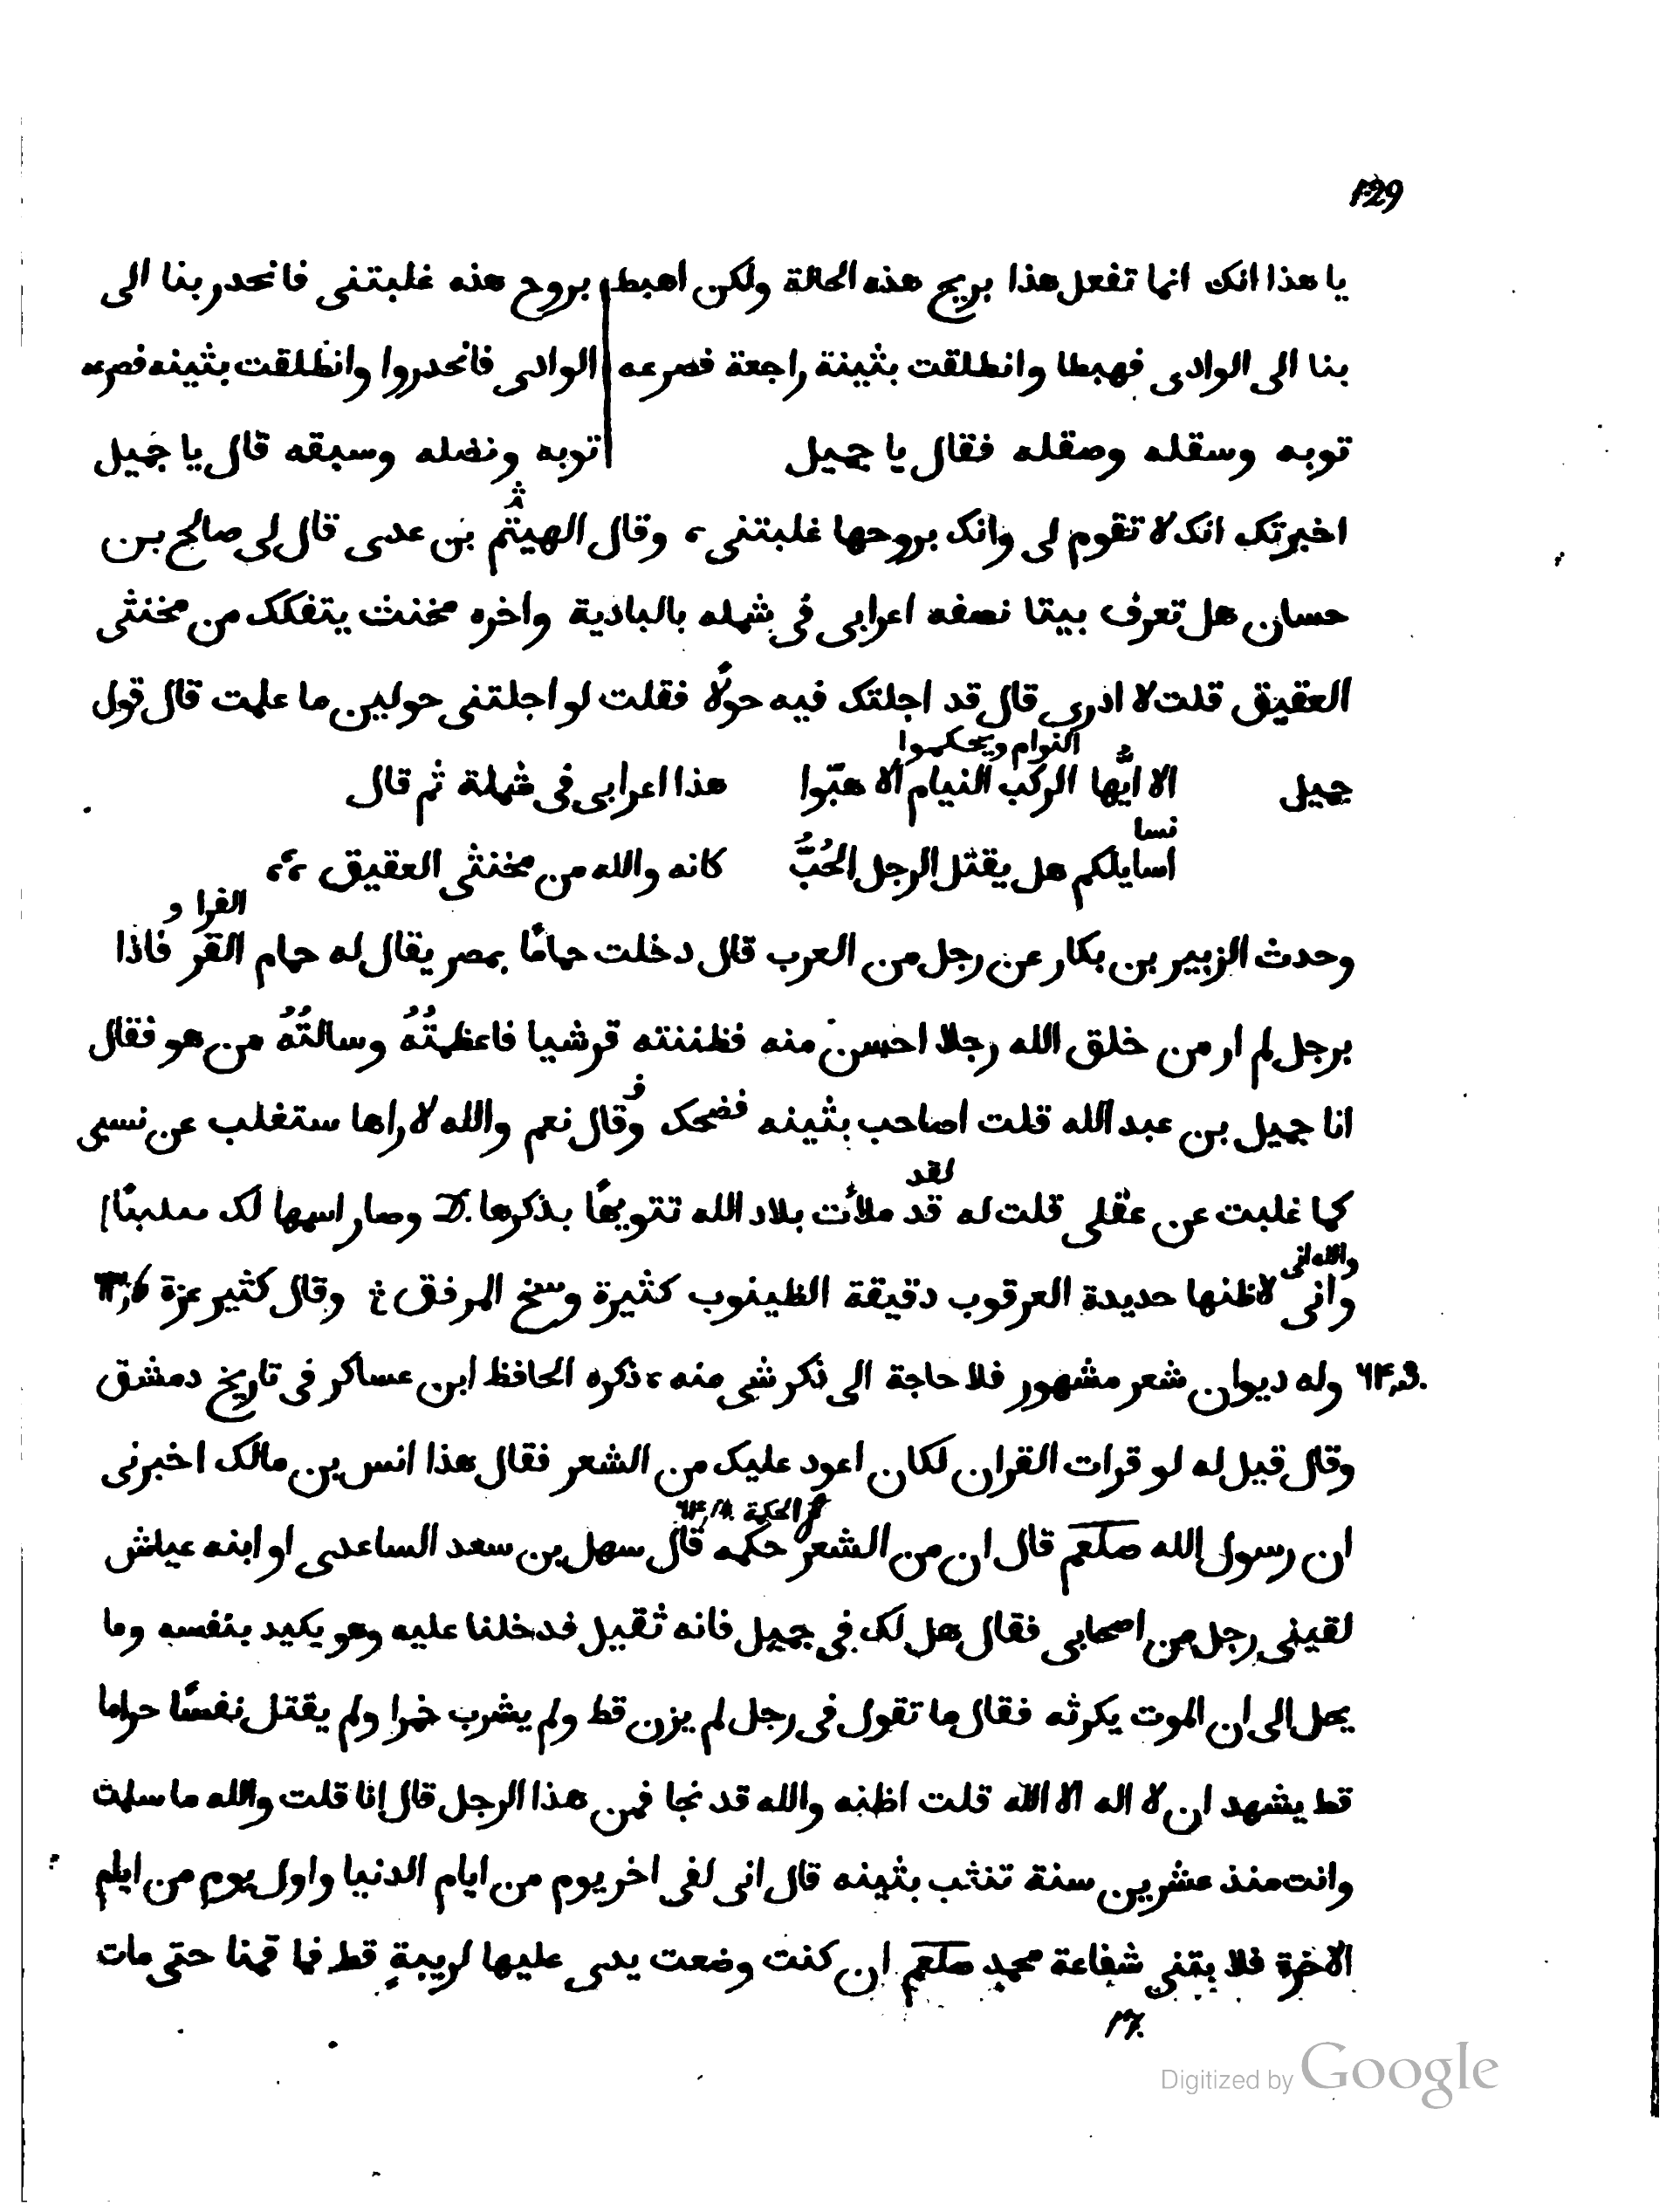 129
يا هذا انك انما تفعل هذا بريح هذه الحالة ولكن اهبط | بروح هذه غلبتنى فانحدر بنا الى
بنا الى الوادى فهبطا وانطلقت بثينة راجعة فصرعه | الوادى فانحدروا وانطلقت بثينه فصرعه
توبه وسقله وصقله فقال يا جميل | توبه ونضله وسبقه قال يا جميل
اخبرتك انك لا تقوم لى وانك بروحها غلبتنى، وقال الهيثم بن عدى قال لى صالح بن
حسان هل تعرف بيتا نصفه اعرابى فى شمله بالبادية واخره مخنث يتفكك من مخنثى
العقيق قلت لا ادرى قال قد اجلتك فيه حولًا فقلت لو اجلتنى حولين ما علمت قال قول
النوام ويحكموا
جميل الا ايُّها الركب النيام الا هبّوا هذا اعرابى فى شملة ثم قال
نسا
اسايلكم هل يقتل الرجل الحُبُّ كانه والله من مخنثى العقيق
الفرا و
وحدث الزبير بن بكار عن رجل من العرب قال دخلت حمامًا بمصر يقال له حمام القر فاذا
برجل لم ار من خلق الله رجلا احسن منه فظننته قرشيا فاعظمتُهُ وسالتُهُ من هو فقال
ف
انا جميل بن عبد الله قلت اصاحب بثينه فضحك وقال نعم والله لا راها ستغلب عن نسبى
لقد
كما غلبت عن عقلى قلت له قد ملأت بلاد الله تنويهًا بذكرها وصار اسمها لك
والله انى
وانى لاظنها حديدة العرقوب دقيقة الظينوب كثيرة وسخ المرفق وقال كثير عزة
وله ديوان شعر مشهور فلا حاجة الى ذكر شى منه، ذكره الحافظ ابن عساكر فى تاريخ دمشق
وقال قيل له لو قرات القران لكان اعود عليك من الشعر فقال هذا انس بن مالك اخبرنى
الحكمة
ان رسول الله صلعم قال ان من الشعر حكمه قال سهل بن سعد الساعدى او ابنه عياش
لقينى رجل من اصحابى فقال هل لك فى جميل فانه ثقيل فدخلنا عليه وهو يكيد بنفسه وما
يحل الى ان الموت يكرثه فقال ما تقول فى رجل لم يزن قط ولم يشرب خمرا ولم يقتل نفسًا حراما
قط يشهد ان لا اله الا الله قلت اظنه والله قد نجا فمن هذا الرجل قال انا قلت والله ما سلمت
وانت منذ عشرين سنة تنثب بثينه قال انى لفى اخر يوم من ايام الدنيا واول يوم من ايام
الاخرة فلا بقنى شفاعة محمد صلعم ان كنت وضعت يدى عليها لريبةٍ قط فما قمنا حتى مات
17.
Digitized by Google